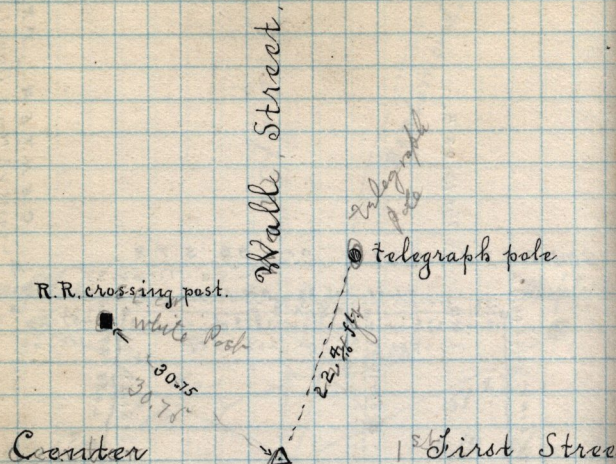 Wall Street.
Telegraph
Pole
telegraph pole
R.R. crossing post.
white Post
30.75
30.75
Center
1st First Stree